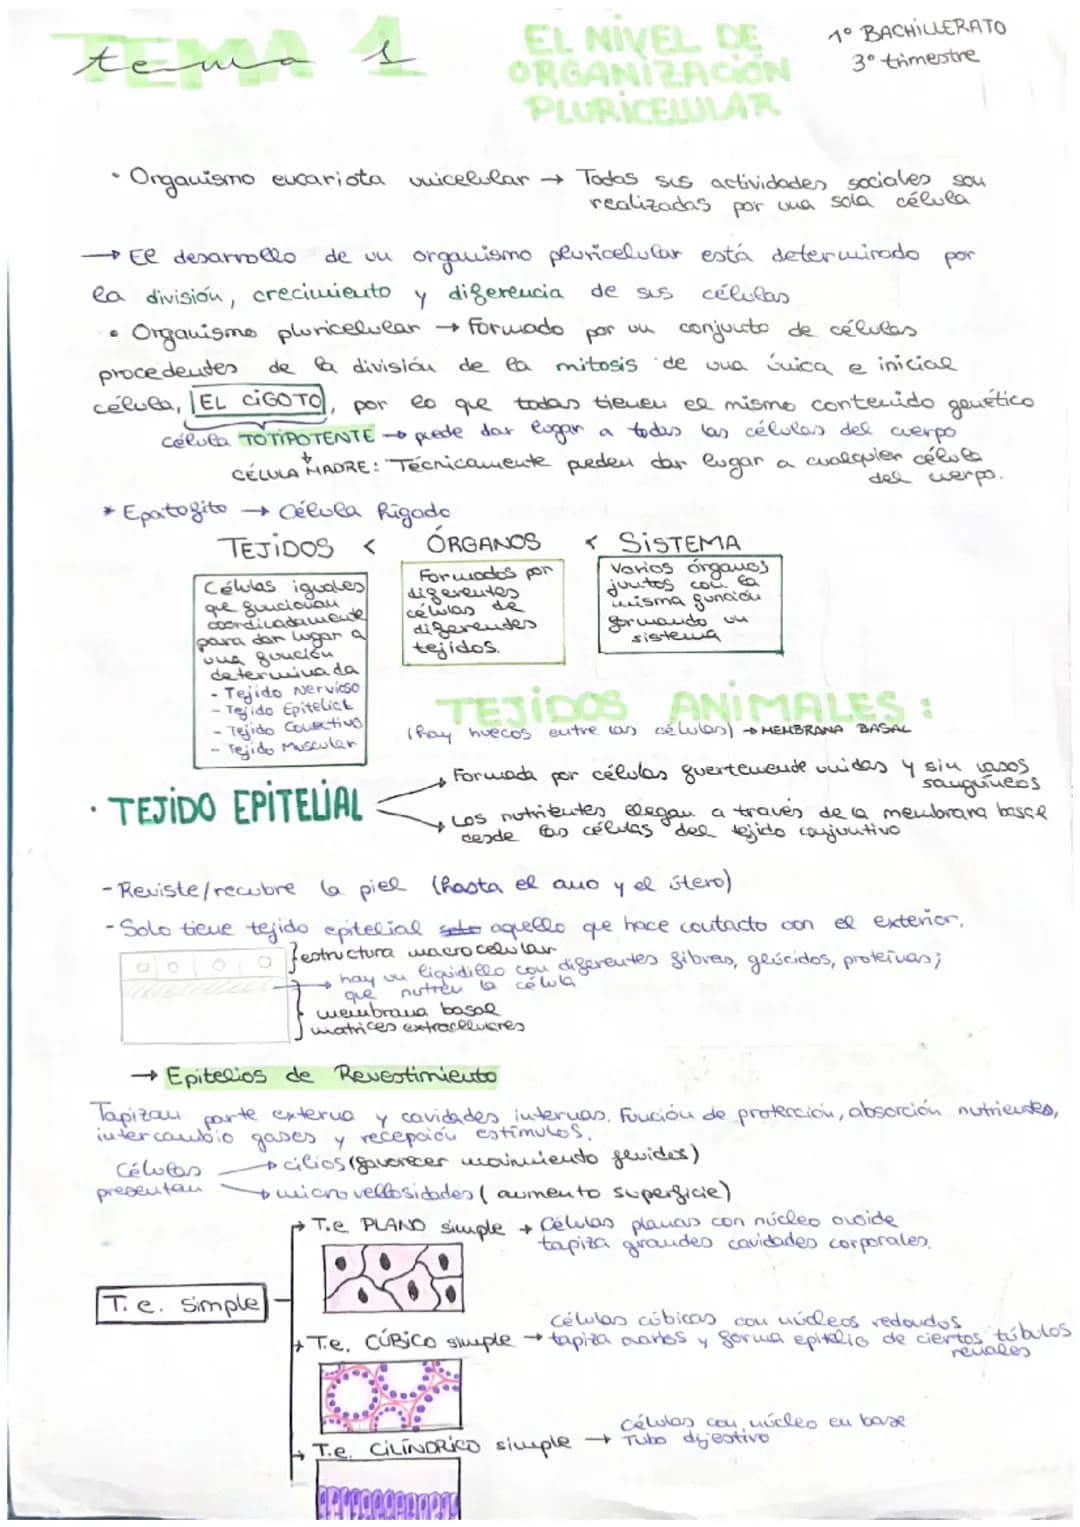 TEMA 1
tema 1
EL NIVEL DE
ORGANIZACIÓN
PLURICELULAR
1º BACHILLERATO
3º trimestre
· Organismo eucariota unicelular → Todas sus actividades sociales son
realizadas por una sola célula
→ El desarrollo de un organismo pluricelular está determinado por
la división, crecimiento y diferencia de sus células
• Organismo pluricelular → Formado por un conjunto de células
procedentes de la división de la mitosis de una única e inicial
célula, EL CIGOTO, por lo que todas tienen el mismo contenido genético
célula TOTIPOTENTE → puede dar lugar a todas las células del cuerpo
CÉLULA MADRE: Técnicamente pueden dar lugar a cualquier célula
del cuerpo.
* Epatofito → Célula hígado
TEJIDOS < ÓRGANOS < SISTEMA
Células iguales
que funcionan
coordinadamente
para dar lugar a
una función
determinada
- Tejido Nervioso
- Tejido Epitelial
- Tejido Conectivo
- Tejido Muscular
Formados por
diferentes
células de
diferentes
tejidos.
Varios órganos
juntos con la
misma función
formando un
sistema
TEJIDOS ANIMALES:
(hay huecos entre las células) → MEMBRANA BASAL
· TEJIDO EPITELIAL
Formada por células fuertemente unidas y sin vasos
sanguíneos
Los nutrientes llegan a través de la membrana basal
desde las células del tejido conjuntivo
- Reviste/recubre la piel (hasta el ano y el útero)
- Solo tiene tejido epitelial solo aquello que hace contacto con el exterior.
estructura macrocelular
→ hay un liquidillo con diferentes fibras, glúcidos, proteínas;
que nutren la célula
membrana basal
matrices extracelulares
→ Epitelios de Revestimiento
Tapizan parte externa y cavidades internas. Función de protección, absorción nutrientes,
intercambio gases y recepción estímulos.
Células
presentan
→ cilios (favorecer movimiento fluidos)
→ microvellosidades (aumento superficie)
T.e. simple
→ T.e PLANO simple → Células planas con núcleo ovoide
tapiza grandes cavidades corporales.
→ T.e. CÚBICO simple → Células cúbicas con núcleos redondos
tapiza ovarios y forma epitelio de ciertos túbulos
renales
→ T.e. CILÍNDRICO simple → Células con núcleo en base
Tubo digestivo